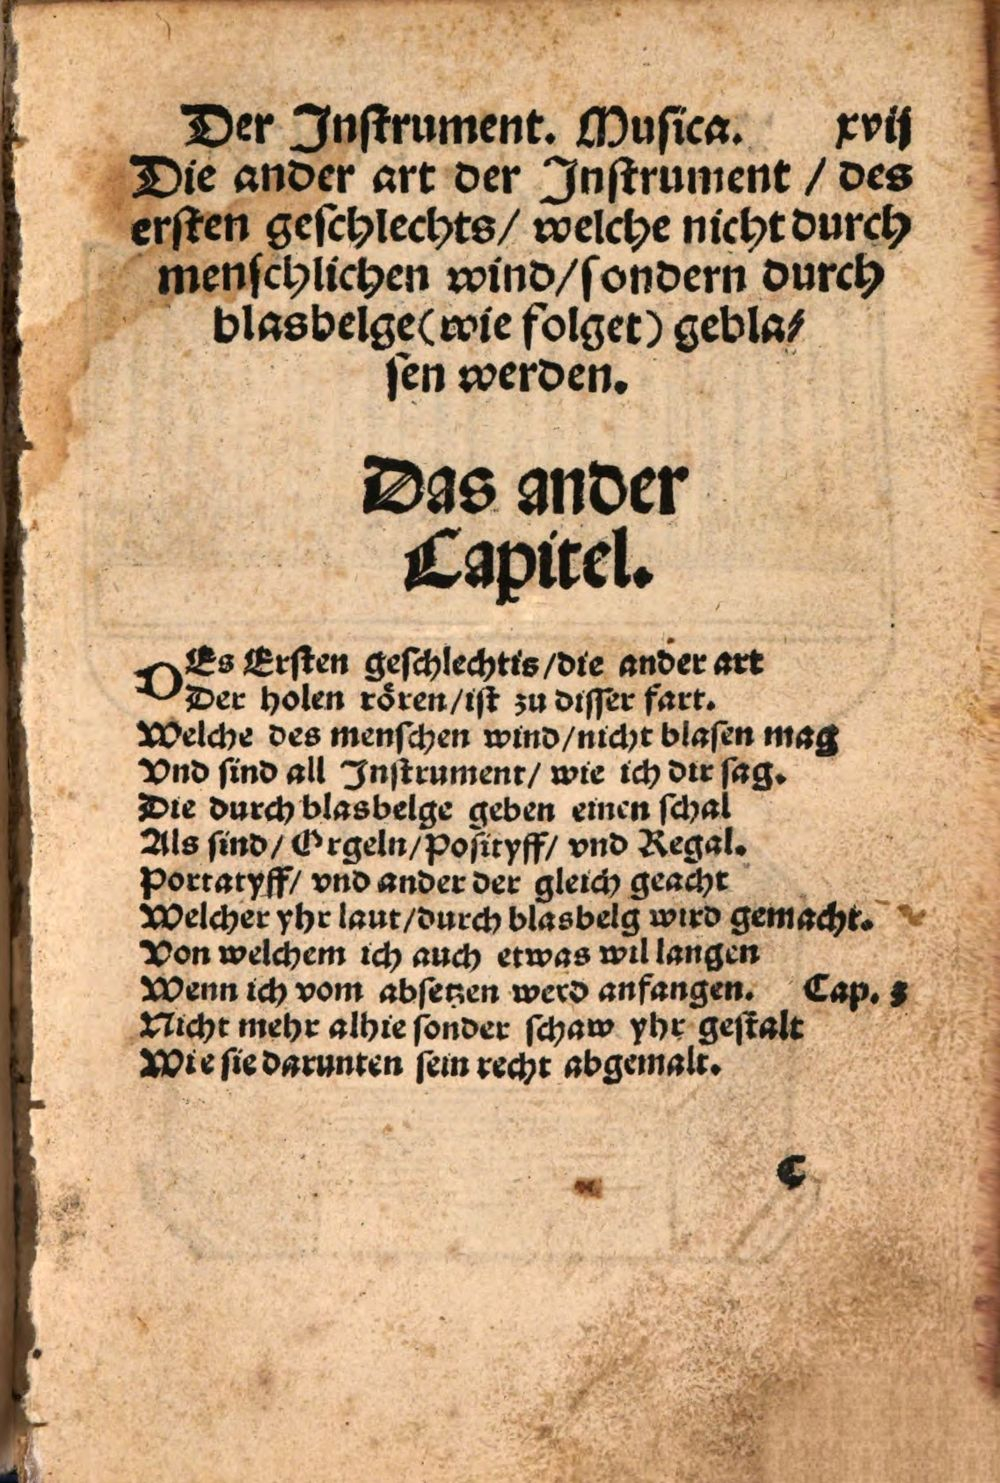 Der Jnſtrument. Muſica. xvij
Die ander art der Jnſtrument / des
erſten geſchlechts/ welche nicht durch
menſchlichen wind/ſondern durch
blasbelge(wie folget) gebla⸗
ſen werden.
Das ander
Capitel.
DEs Erſten geſchlechtis/die ander art
Der holen rören/iſt zu diſſer fart.
Welche des menſchen wind/nicht blaſen mag
Vnd ſind all Jnſtrument/ wie ich dir ſag.
Die durch blasbelge geben einen ſchal
Als ſind/ Orgeln/Poſityff/ vnd Regal.
Portatyff/ vnd ander der gleich geacht
Welcher yhr laut/durch blasbelg wird gemacht.
Von welchem ich auch etwas wil langen
Wenn ich vom abſetzen werd anfangen. Cap. 3
Nicht mehr alhie ſonder ſchaw yhr geſtalt
Wie ſie darunten ſein recht abgemalt.
C